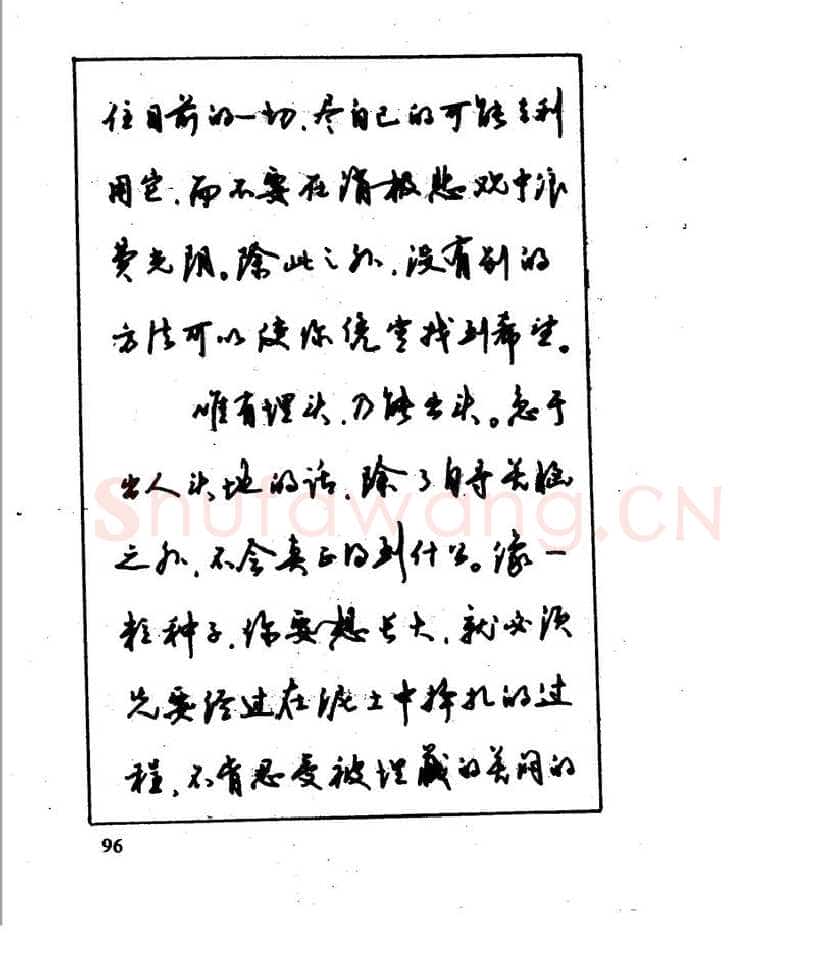 住目前的一切，尽自己的可能去利
用它，而不要在消极悲观中浪
费光阴。除此之外，没有别的
方法可以使你凭空找到希望。
唯有埋头，乃能出头。急于
出人头地的话，除了自寻苦恼
之外，不会真正得到什么。像一
粒种子，你要想长大，就必须
先要经过在泥土中挣扎的过
程，不肯忍受被埋藏的苦闷的
shufawang.CN
96